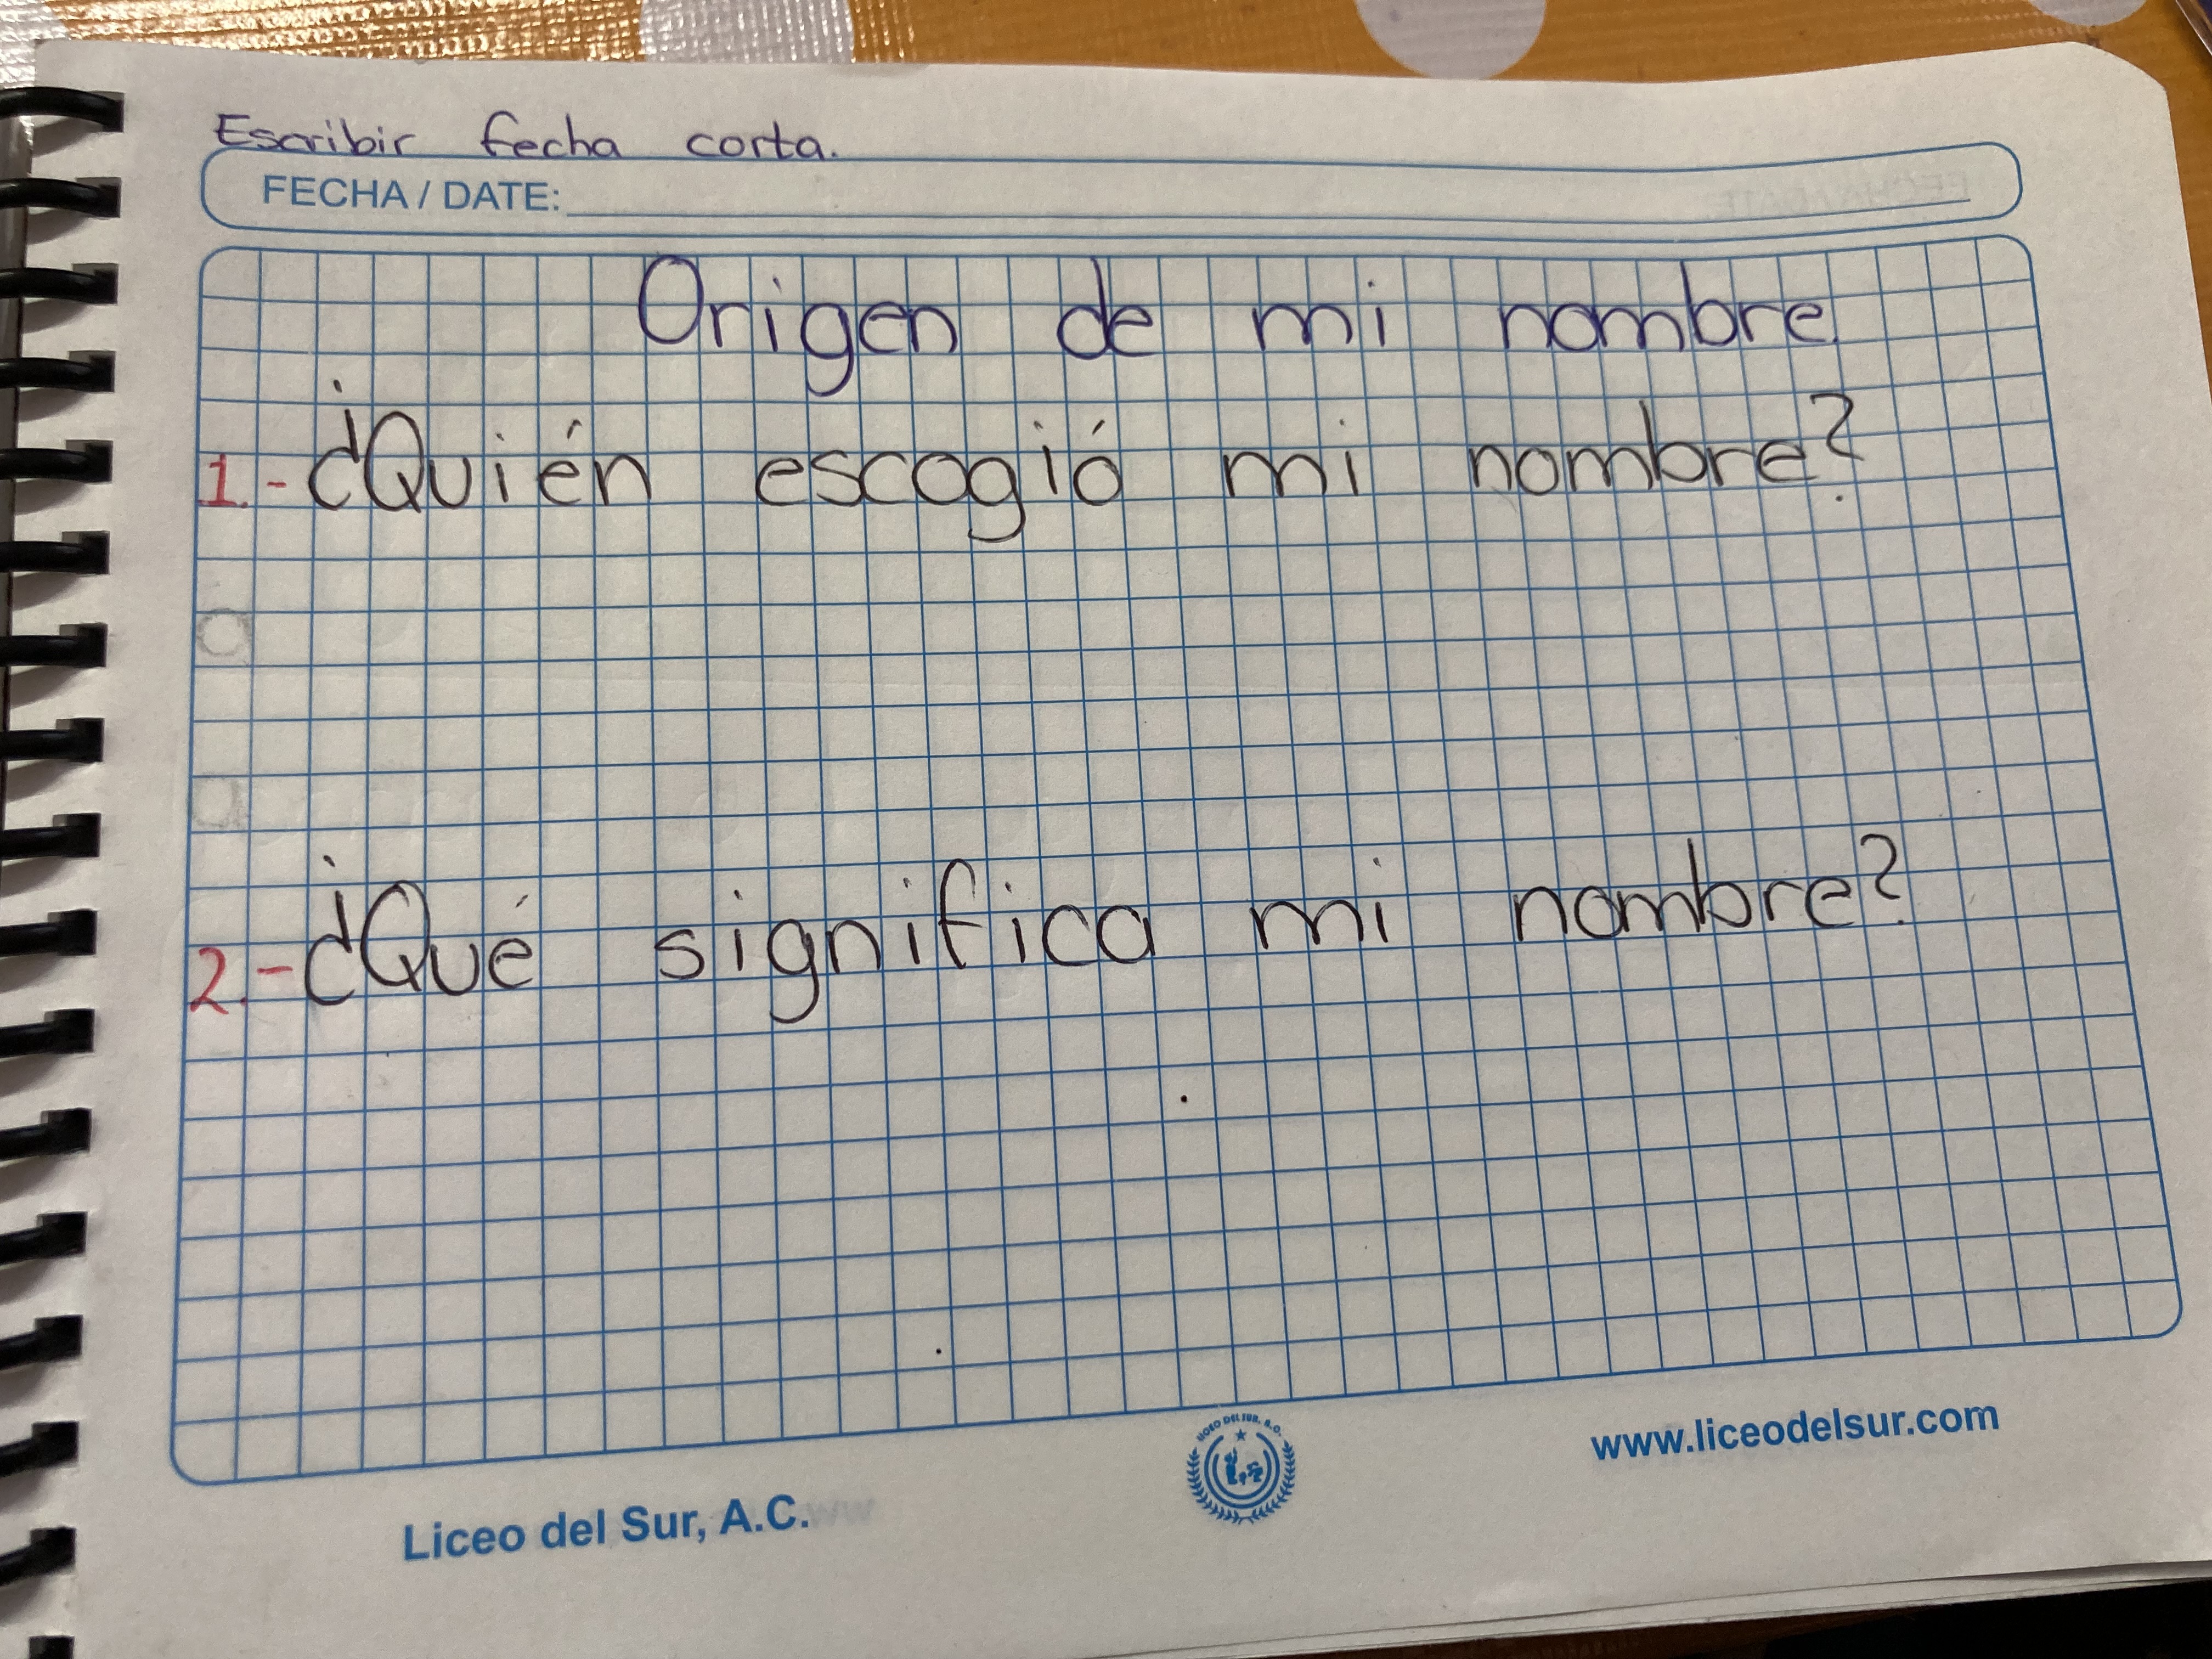 Escribir fecha corta.
FECHA / DATE:
Origen de mi nombre
1.- ¿Quién escogió mi nombre?
2.- ¿Qué significa mi nombre?
LICEO DEL SUR, A.C.
www.liceodelsur.com
Liceo del Sur, A.C.